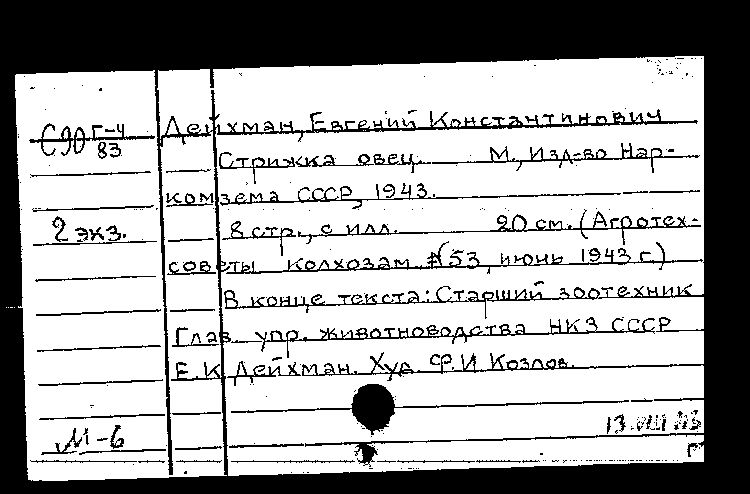 С90 Г-4/83 Дейхман, Евгений Константинович
Стрижка овец. М., Изд-во Нар-
комзема СССР, 1943.
2 экз. 8 стр., с илл. 20 см. (Агротех-
советы колхозам #53, июнь 1943 г.)
В конце текста: Старший зоотехник
Глав. упр. животноводства НКЗ СССР
Е.К. Дейхман. Худ. Ф.И. Козлов.
М-6 13.VIII